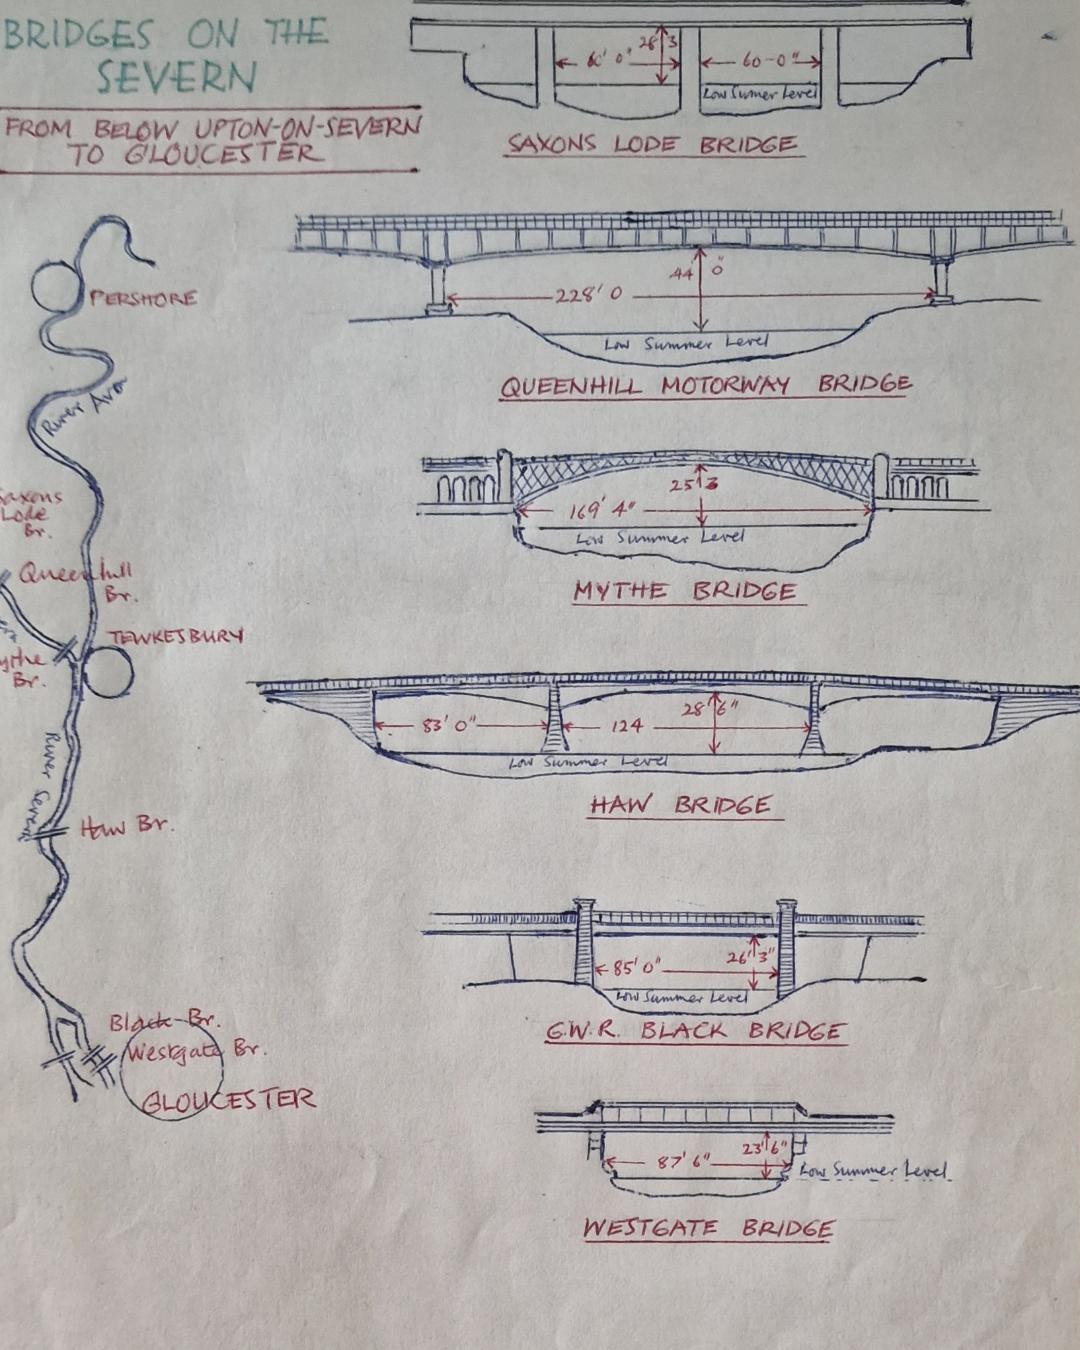 BRIDGES ON THE
SEVERN
FROM BELOW UPTON-ON-SEVERN
TO GLOUCESTER
28 3
60' 0"
60-0"
Low Sumer Level
SAXONS LODE BRIDGE
PERSHORE
River Avon
44' 0"
228' 0
Low Summer Level
QUEENHILL MOTORWAY BRIDGE
25' 3
169' 4"
Low Summer Level
MYTHE BRIDGE
Saxons
Lode
Br.
Queenhill
Br.
TEWKESBURY
Mythe
Br.
River Severn
Haw Br.
83' 0"
124
28' 6"
Low Summer Level
HAW BRIDGE
85' 0"
26' 3"
Low Summer Level
G.W.R. BLACK BRIDGE
Black Br.
Westgate Br.
GLOUCESTER
23' 6"
87' 6"
Low Summer Level
WESTGATE BRIDGE